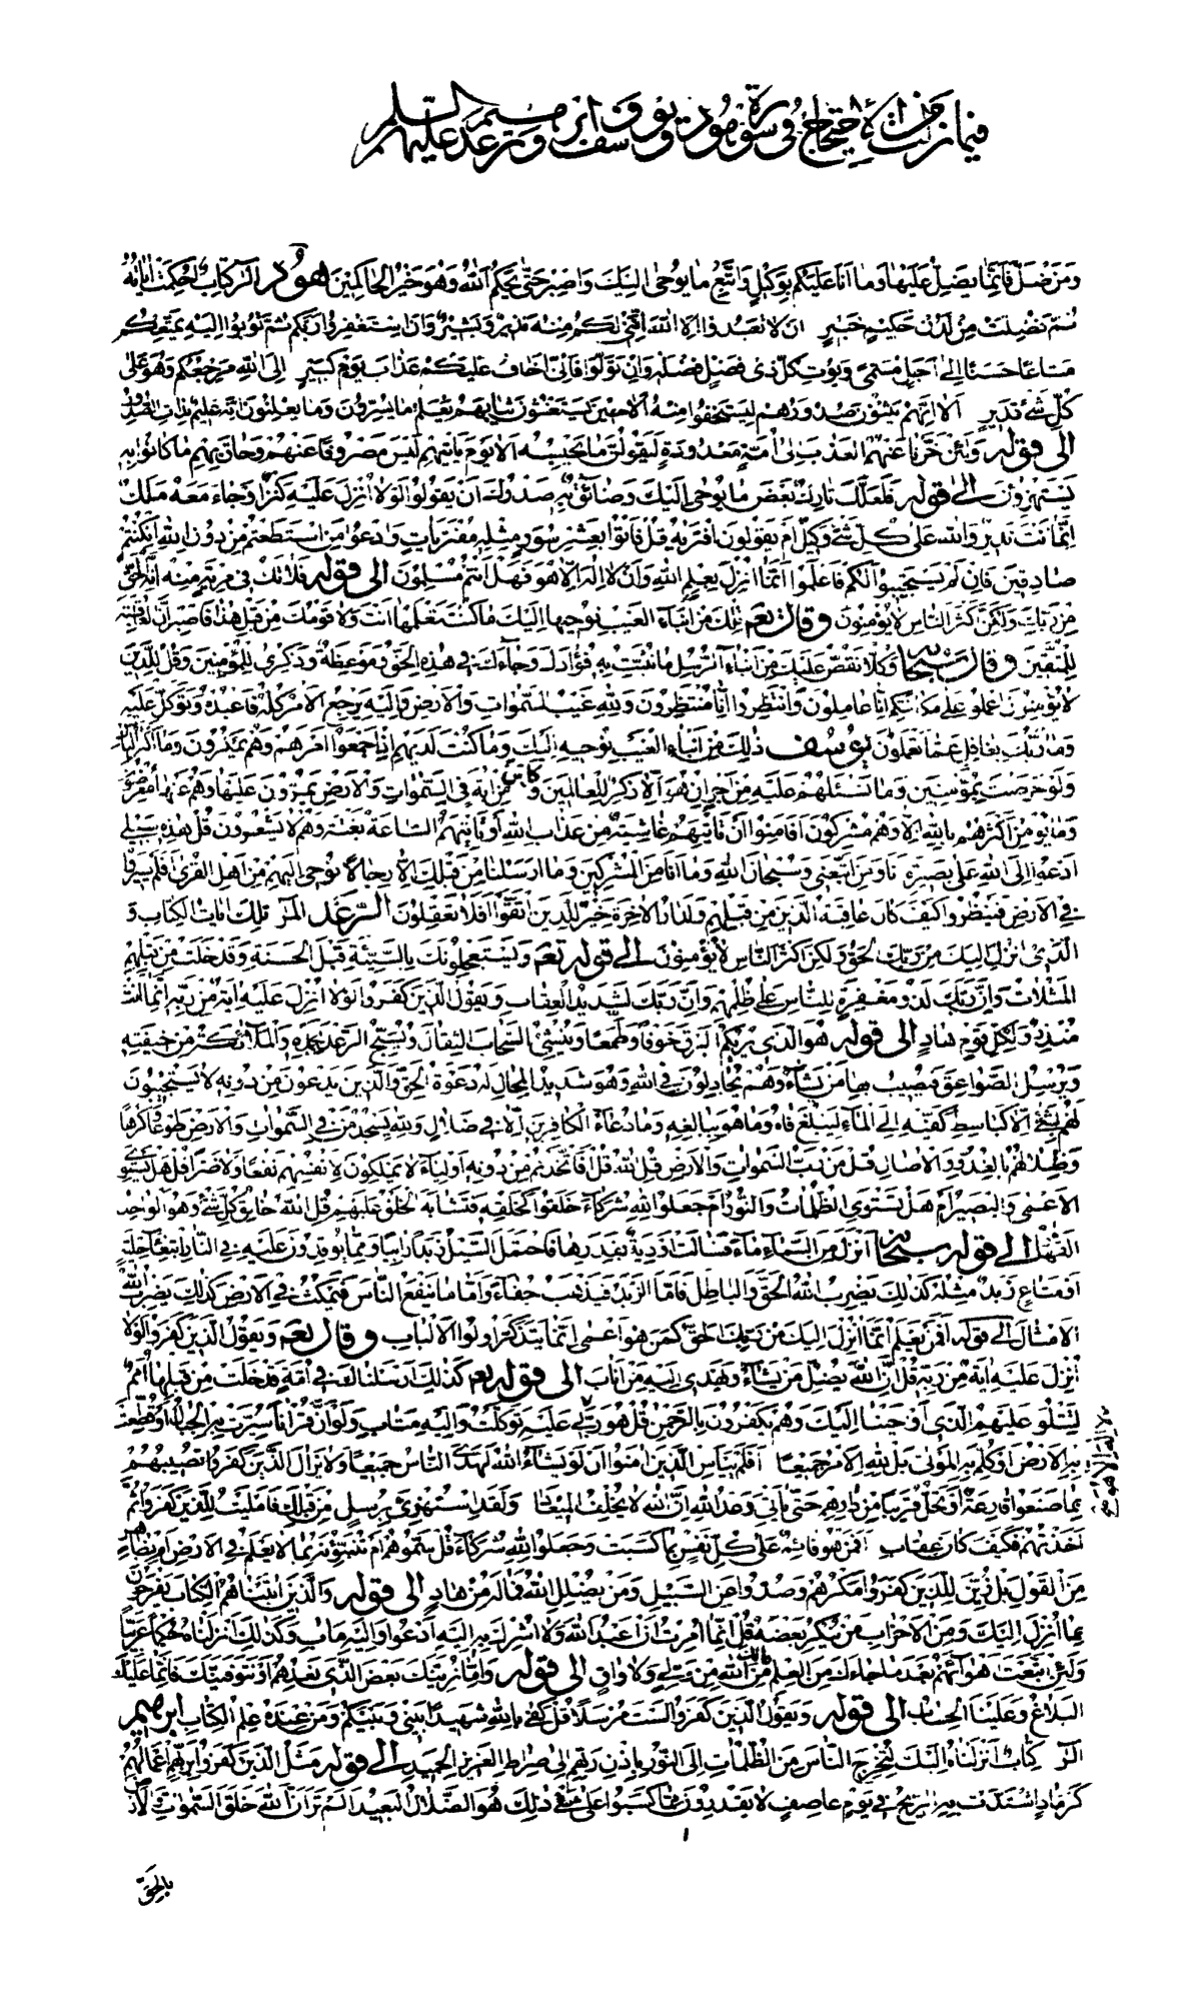 فيما نزل من الاحتجاج في سورة هود ويوسف وابرهيم ورعد عليهم السلم
وَمَنْ ضَلَّ فَإِنَّمَا يَضِلُّ عَلَيْهَا وَمَا أَنَا عَلَيْكُمْ بِوَكِيلٍ وَاتَّبِعْ مَا يُوحَى إِلَيْكَ وَاصْبِرْ حَتَّى يَحْكُمَ اللهُ وَهُوَ خَيْرُ الْحَاكِمِينَ هود الر كِتَابٌ أُحْكِمَتْ آيَاتُهُ
ثُمَّ فُصِّلَتْ مِنْ لَدُنْ حَكِيمٍ خَبِيرٍ أَنْ لَا تَعْبُدُوا إِلَّا اللهَ إِنَّنِي لَكُمْ مِنْهُ نَذِيرٌ وَبَشِيرٌ وَأَنِ اسْتَغْفِرُوا رَبَّكُمْ ثُمَّ تُوبُوا إِلَيْهِ يُمَتِّعْكُمْ
مَتَاعًا حَسَنًا إِلَى أَجَلٍ مُسَمًّى وَيُؤْتِ كُلَّ ذِي فَضْلٍ فَضْلَهُ وَإِنْ تَوَلَّوْا فَإِنِّي أَخَافُ عَلَيْكُمْ عَذَابَ يَوْمٍ كَبِيرٍ إِلَى اللهِ مَرْجِعُكُمْ وَهُوَ عَلَى
كُلِّ شَيْءٍ قَدِيرٌ أَلَا إِنَّهُمْ يَثْنُونَ صُدُورَهُمْ لِيَسْتَخْفُوا مِنْهُ أَلَا حِينَ يَسْتَغْشُونَ ثِيَابَهُمْ يَعْلَمُ مَا يُسِرُّونَ وَمَا يُعْلِنُونَ إِنَّهُ عَلِيمٌ بِذَاتِ الصُّدُورِ
الى قوله وَلَئِنْ أَخَّرْنَا عَنْهُمُ الْعَذَابَ إِلَى أُمَّةٍ مَعْدُودَةٍ لَيَقُولُنَّ مَا يَحْبِسُهُ أَلَا يَوْمَ يَأْتِيهِمْ لَيْسَ مَصْرُوفًا عَنْهُمْ وَحَاقَ بِهِمْ مَا كَانُوا بِهِ
يَسْتَهْزِؤُنَ الى قوله فَلَعَلَّكَ تَارِكٌ بَعْضَ مَا يُوحَى إِلَيْكَ وَضَائِقٌ بِهِ صَدْرُكَ أَنْ يَقُولُوا لَوْلَا أُنْزِلَ عَلَيْهِ كَنْزٌ أَوْ جَاءَ مَعَهُ مَلَكٌ
إِنَّمَا أَنْتَ نَذِيرٌ وَاللهُ عَلَى كُلِّ شَيْءٍ وَكِيلٌ أَمْ يَقُولُونَ افْتَرَاهُ قُلْ فَأْتُوا بِعَشْرِ سُوَرٍ مِثْلِهِ مُفْتَرَيَاتٍ وَادْعُوا مَنِ اسْتَطَعْتُمْ مِنْ دُونِ اللهِ إِنْ كُنْتُمْ
صَادِقِينَ فَإِنْ لَمْ يَسْتَجِيبُوا لَكُمْ فَاعْلَمُوا أَنَّمَا أُنْزِلَ بِعِلْمِ اللهِ وَأَنْ لَا إِلَهَ إِلَّا هُوَ فَهَلْ أَنْتُمْ مُسْلِمُونَ الى قوله فَلَا تَكُ فِي مِرْيَةٍ مِنْهُ إِنَّهُ الْحَقُّ
مِنْ رَبِّكَ وَلَكِنَّ أَكْثَرَ النَّاسِ لَا يُؤْمِنُونَ وقال تعم تِلْكَ مِنْ أَنْبَاءِ الْغَيْبِ نُوحِيهَا إِلَيْكَ مَا كُنْتَ تَعْلَمُهَا أَنْتَ وَلَا قَوْمُكَ مِنْ قَبْلِ هَذَا فَاصْبِرْ إِنَّ الْعَاقِبَةَ
لِلْمُتَّقِينَ وقال سبحانه وَكُلًّا نَقُصُّ عَلَيْكَ مِنْ أَنْبَاءِ الرُّسُلِ مَا نُثَبِّتُ بِهِ فُؤَادَكَ وَجَاءَكَ فِي هَذِهِ الْحَقُّ وَمَوْعِظَةٌ وَذِكْرَى لِلْمُؤْمِنِينَ وَقُلْ لِلَّذِينَ
لَا يُؤْمِنُونَ اعْمَلُوا عَلَى مَكَانَتِكُمْ إِنَّا عَامِلُونَ وَانْتَظِرُوا إِنَّا مُنْتَظِرُونَ وَلِلَّهِ غَيْبُ السَّمَوَاتِ وَالْأَرْضِ وَإِلَيْهِ يُرْجَعُ الْأَمْرُ كُلُّهُ فَاعْبُدْهُ وَتَوَكَّلْ عَلَيْهِ
وَمَا رَبُّكَ بِغَافِلٍ عَمَّا تَعْمَلُونَ يوسف ذَلِكَ مِنْ أَنْبَاءِ الْغَيْبِ نُوحِيهِ إِلَيْكَ وَمَا كُنْتَ لَدَيْهِمْ إِذْ أَجْمَعُوا أَمْرَهُمْ وَهُمْ يَمْكُرُونَ وَمَا أَكْثَرُ النَّاسِ
وَلَوْ حَرَصْتَ بِمُؤْمِنِينَ وَمَا تَسْئَلُهُمْ عَلَيْهِ مِنْ أَجْرٍ إِنْ هُوَ إِلَّا ذِكْرٌ لِلْعَالَمِينَ وَكَأَيِّنْ مِنْ آيَةٍ فِي السَّمَوَاتِ وَالْأَرْضِ يَمُرُّونَ عَلَيْهَا وَهُمْ عَنْهَا مُعْرِضُونَ
وَمَا يُؤْمِنُ أَكْثَرُهُمْ بِاللهِ إِلَّا وَهُمْ مُشْرِكُونَ أَفَأَمِنُوا أَنْ تَأْتِيَهُمْ غَاشِيَةٌ مِنْ عَذَابِ اللهِ أَوْ تَأْتِيَهُمُ السَّاعَةُ بَغْتَةً وَهُمْ لَا يَشْعُرُونَ قُلْ هَذِهِ سَبِيلِي
أَدْعُوا إِلَى اللهِ عَلَى بَصِيرَةٍ أَنَا وَمَنِ اتَّبَعَنِي وَسُبْحَانَ اللهِ وَمَا أَنَا مِنَ الْمُشْرِكِينَ وَمَا أَرْسَلْنَا مِنْ قَبْلِكَ إِلَّا رِجَالًا نُوحِي إِلَيْهِمْ مِنْ أَهْلِ الْقُرَى أَفَلَمْ يَسِيرُوا
فِي الْأَرْضِ فَيَنْظُرُوا كَيْفَ كَانَ عَاقِبَةُ الَّذِينَ مِنْ قَبْلِهِمْ وَلَدَارُ الْآخِرَةِ خَيْرٌ لِلَّذِينَ اتَّقَوْا أَفَلَا تَعْقِلُونَ الرعد المر تِلْكَ آيَاتُ الْكِتَابِ وَ
الَّذِي أُنْزِلَ إِلَيْكَ مِنْ رَبِّكَ الْحَقُّ وَلَكِنَّ أَكْثَرَ النَّاسِ لَا يُؤْمِنُونَ الى قوله تعم وَيَسْتَعْجِلُونَكَ بِالسَّيِّئَةِ قَبْلَ الْحَسَنَةِ وَقَدْ خَلَتْ مِنْ قَبْلِهِمُ
الْمَثُلَاتُ وَإِنَّ رَبَّكَ لَذُو مَغْفِرَةٍ لِلنَّاسِ عَلَى ظُلْمِهِمْ وَإِنَّ رَبَّكَ لَشَدِيدُ الْعِقَابِ وَيَقُولُ الَّذِينَ كَفَرُوا لَوْلَا أُنْزِلَ عَلَيْهِ آيَةٌ مِنْ رَبِّهِ إِنَّمَا أَنْتَ
مُنْذِرٌ وَلِكُلِّ قَوْمٍ هَادٍ الى قوله هُوَ الَّذِي يُرِيكُمُ الْبَرْقَ خَوْفًا وَطَمَعًا وَيُنْشِئُ السَّحَابَ الثِّقَالَ وَيُسَبِّحُ الرَّعْدُ بِحَمْدِهِ وَالْمَلَائِكَةُ مِنْ خِيفَتِهِ
وَيُرْسِلُ الصَّوَاعِقَ فَيُصِيبُ بِهَا مَنْ يَشَاءُ وَهُمْ يُجَادِلُونَ فِي اللهِ وَهُوَ شَدِيدُ الْمِحَالِ لَهُ دَعْوَةُ الْحَقِّ وَالَّذِينَ يَدْعُونَ مِنْ دُونِهِ لَا يَسْتَجِيبُونَ
لَهُمْ بِشَيْءٍ إِلَّا كَبَاسِطِ كَفَّيْهِ إِلَى الْمَاءِ لِيَبْلُغَ فَاهُ وَمَا هُوَ بِبَالِغِهِ وَمَا دُعَاءُ الْكَافِرِينَ إِلَّا فِي ضَلَالٍ وَلِلَّهِ يَسْجُدُ مَنْ فِي السَّمَوَاتِ وَالْأَرْضِ طَوْعًا وَكَرْهًا
وَظِلَالُهُمْ بِالْغُدُوِّ وَالْآصَالِ قُلْ مَنْ رَبُّ السَّمَوَاتِ وَالْأَرْضِ قُلِ اللهُ قُلْ أَفَاتَّخَذْتُمْ مِنْ دُونِهِ أَوْلِيَاءَ لَا يَمْلِكُونَ لِأَنْفُسِهِمْ نَفْعًا وَلَا ضَرًّا قُلْ هَلْ يَسْتَوِي
الْأَعْمَى وَالْبَصِيرُ أَمْ هَلْ تَسْتَوِي الظُّلُمَاتُ وَالنُّورُ أَمْ جَعَلُوا لِلَّهِ شُرَكَاءَ خَلَقُوا كَخَلْقِهِ فَتَشَابَهَ الْخَلْقُ عَلَيْهِمْ قُلِ اللهُ خَالِقُ كُلِّ شَيْءٍ وَهُوَ الْوَاحِدُ
الْقَهَّارُ الى قوله سبحانه أَنْزَلَ مِنَ السَّمَاءِ مَاءً فَسَالَتْ أَوْدِيَةٌ بِقَدَرِهَا فَاحْتَمَلَ السَّيْلُ زَبَدًا رَابِيًا وَمِمَّا يُوقِدُونَ عَلَيْهِ فِي النَّارِ ابْتِغَاءَ حِلْيَةٍ
أَوْ مَتَاعٍ زَبَدٌ مِثْلُهُ كَذَلِكَ يَضْرِبُ اللهُ الْحَقَّ وَالْبَاطِلَ فَأَمَّا الزَّبَدُ فَيَذْهَبُ جُفَاءً وَأَمَّا مَا يَنْفَعُ النَّاسَ فَيَمْكُثُ فِي الْأَرْضِ كَذَلِكَ يَضْرِبُ اللهُ
الْأَمْثَالَ الى قوله أَفَمَنْ يَعْلَمُ أَنَّمَا أُنْزِلَ إِلَيْكَ مِنْ رَبِّكَ الْحَقُّ كَمَنْ هُوَ أَعْمَى إِنَّمَا يَتَذَكَّرُ أُولُوا الْأَلْبَابِ وقال تعم وَيَقُولُ الَّذِينَ كَفَرُوا لَوْلَا
أُنْزِلَ عَلَيْهِ آيَةٌ مِنْ رَبِّهِ قُلْ إِنَّ اللهَ يُضِلُّ مَنْ يَشَاءُ وَيَهْدِي إِلَيْهِ مَنْ أَنَابَ الى قوله تعم كَذَلِكَ أَرْسَلْنَاكَ فِي أُمَّةٍ قَدْ خَلَتْ مِنْ قَبْلِهَا أُمَمٌ
لِتَتْلُوَ عَلَيْهِمُ الَّذِي أَوْحَيْنَا إِلَيْكَ وَهُمْ يَكْفُرُونَ بِالرَّحْمَنِ قُلْ هُوَ رَبِّي عَلَيْهِ تَوَكَّلْتُ وَإِلَيْهِ مَتَابِ وَلَوْ أَنَّ قُرْآنًا سُيِّرَتْ بِهِ الْجِبَالُ أَوْ قُطِّعَتْ
لا اله الا هو
بِهِ الْأَرْضُ أَوْ كُلِّمَ بِهِ الْمَوْتَى بَلْ لِلَّهِ الْأَمْرُ جَمِيعًا أَفَلَمْ يَيْأَسِ الَّذِينَ آمَنُوا أَنْ لَوْ يَشَاءُ اللهُ لَهَدَى النَّاسَ جَمِيعًا وَلَا يَزَالُ الَّذِينَ كَفَرُوا تُصِيبُهُمْ
بِمَا صَنَعُوا قَارِعَةٌ أَوْ تَحُلُّ قَرِيبًا مِنْ دَارِهِمْ حَتَّى يَأْتِيَ وَعْدُ اللهِ إِنَّ اللهَ لَا يُخْلِفُ الْمِيعَادَ وَلَقَدِ اسْتُهْزِئَ بِرُسُلٍ مِنْ قَبْلِكَ فَأَمْلَيْتُ لِلَّذِينَ كَفَرُوا ثُمَّ
أَخَذْتُهُمْ فَكَيْفَ كَانَ عِقَابِ أَفَمَنْ هُوَ قَائِمٌ عَلَى كُلِّ نَفْسٍ بِمَا كَسَبَتْ وَجَعَلُوا لِلَّهِ شُرَكَاءَ قُلْ سَمُّوهُمْ أَمْ تُنَبِّئُونَهُ بِمَا لَا يَعْلَمُ فِي الْأَرْضِ أَمْ بِظَاهِرٍ
مِنَ الْقَوْلِ بَلْ زُيِّنَ لِلَّذِينَ كَفَرُوا مَكْرُهُمْ وَصُدُّوا عَنِ السَّبِيلِ وَمَنْ يُضْلِلِ اللهُ فَمَا لَهُ مِنْ هَادٍ الى قوله وَالَّذِينَ آتَيْنَاهُمُ الْكِتَابَ يَفْرَحُونَ
بِمَا أُنْزِلَ إِلَيْكَ وَمِنَ الْأَحْزَابِ مَنْ يُنْكِرُ بَعْضَهُ قُلْ إِنَّمَا أُمِرْتُ أَنْ أَعْبُدَ اللهَ وَلَا أُشْرِكَ بِهِ إِلَيْهِ أَدْعُوا وَإِلَيْهِ مَآبِ وَكَذَلِكَ أَنْزَلْنَاهُ حُكْمًا عَرَبِيًّا
وَلَئِنِ اتَّبَعْتَ أَهْوَاءَهُمْ بَعْدَ مَا جَاءَكَ مِنَ الْعِلْمِ مَا لَكَ مِنَ اللهِ مِنْ وَلِيٍّ وَلَا وَاقٍ الى قوله وَإِمَّا نُرِيَنَّكَ بَعْضَ الَّذِي نَعِدُهُمْ أَوْ نَتَوَفَّيَنَّكَ فَإِنَّمَا عَلَيْكَ
الْبَلَاغُ وَعَلَيْنَا الْحِسَابُ الى قوله وَيَقُولُ الَّذِينَ كَفَرُوا لَسْتَ مُرْسَلًا قُلْ كَفَى بِاللهِ شَهِيدًا بَيْنِي وَبَيْنَكُمْ وَمَنْ عِنْدَهُ عِلْمُ الْكِتَابِ ابرهيم
الر كِتَابٌ أَنْزَلْنَاهُ إِلَيْكَ لِتُخْرِجَ النَّاسَ مِنَ الظُّلُمَاتِ إِلَى النُّورِ بِإِذْنِ رَبِّهِمْ إِلَى صِرَاطِ الْعَزِيزِ الْحَمِيدِ الى قوله مَثَلُ الَّذِينَ كَفَرُوا بِرَبِّهِمْ أَعْمَالُهُمْ
كَرَمَادٍ اشْتَدَّتْ بِهِ الرِّيحُ فِي يَوْمٍ عَاصِفٍ لَا يَقْدِرُونَ مِمَّا كَسَبُوا عَلَى شَيْءٍ ذَلِكَ هُوَ الضَّلَالُ الْبَعِيدُ أَلَمْ تَرَ أَنَّ اللهَ خَلَقَ السَّمَوَاتِ وَالْأَرْضَ
بِالْحَقِّ